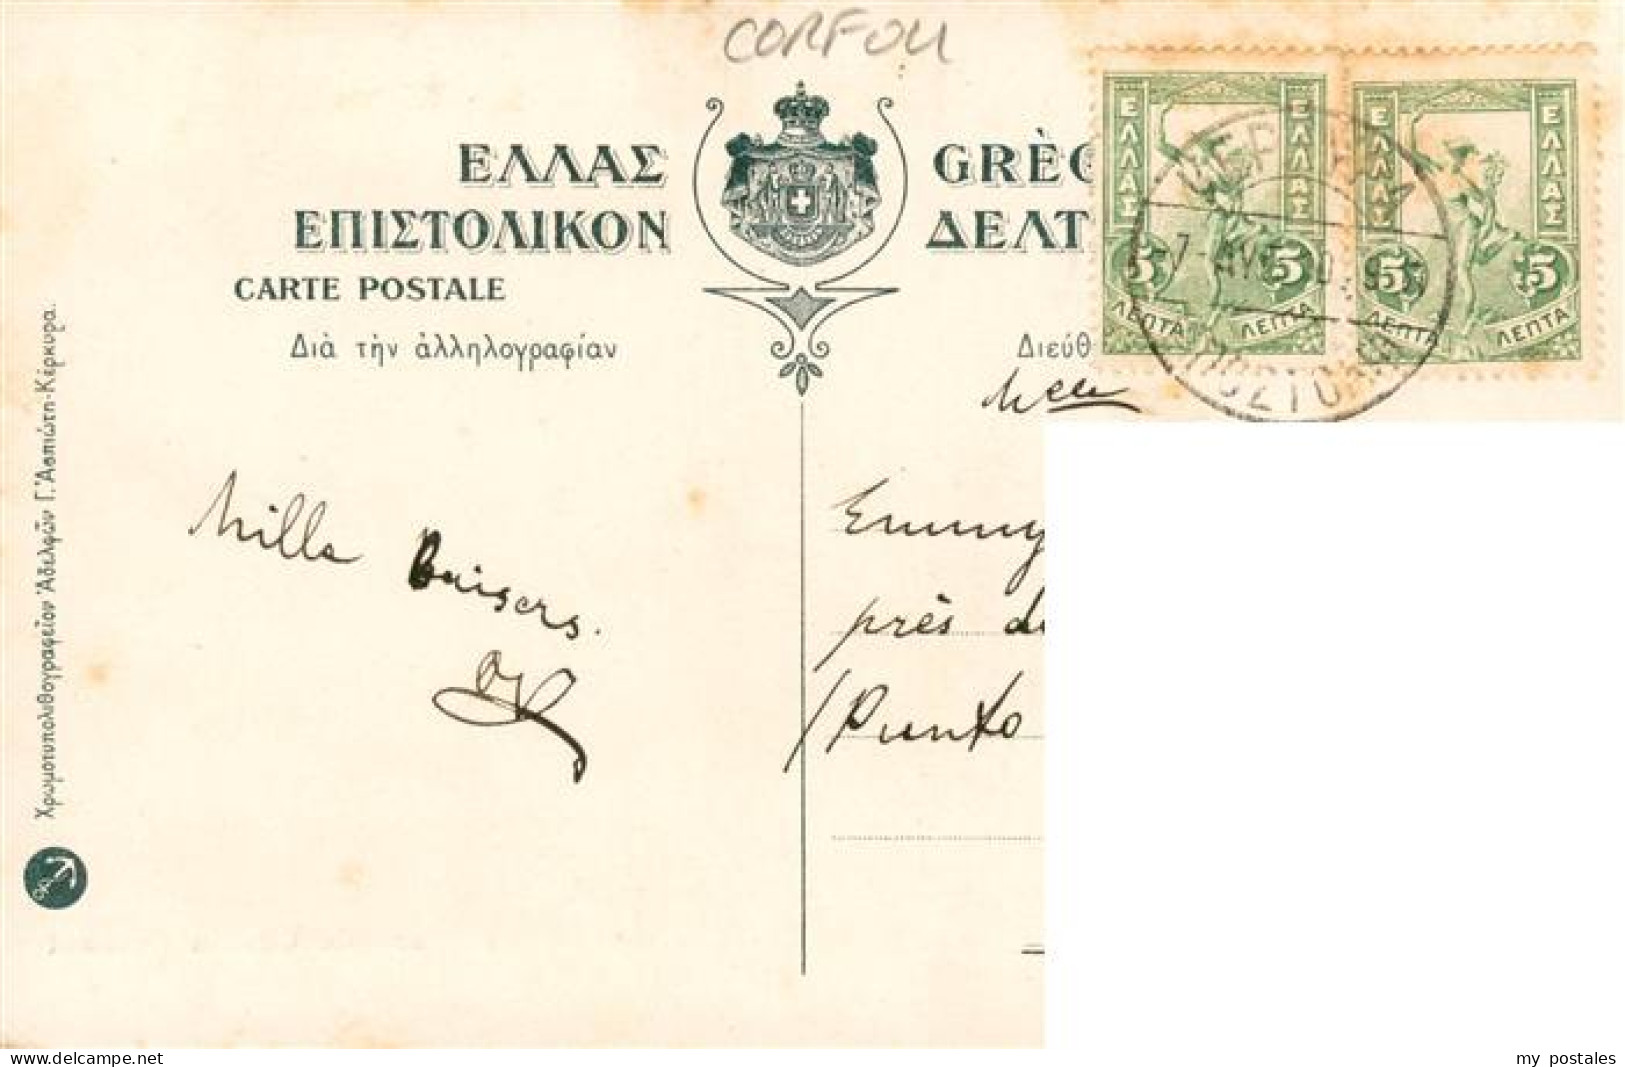 CORFOU
ΕΛΛΑΣ GRÈC
ΕΠΙΣΤΟΛΙΚΟΝ ΔΕΛΤ
CARTE POSTALE
Διὰ τὴν ἀλληλογραφίαν Διεύθ
ΕΛΛΑΣ ΕΛΛΑΣ
5 5
ΛΕΠΤΑ ΛΕΠΤΑ
ΕΛΛΑΣ ΕΛΛΑΣ
5 5
ΛΕΠΤΑ ΛΕΠΤΑ
Melle
Mille Baisers.
Emmy
près de
Punto
Χρωμοτυπολιθογραφεῖον Ἀδελφῶν Γ. Ἀσπιώτη-Κέρκυρα.
www.delcampe.net
my postales